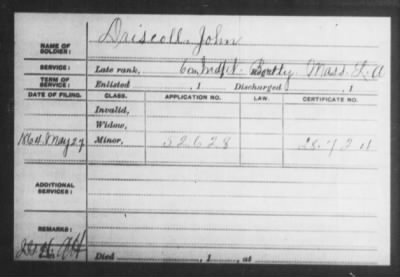 NAME OF SOLDIER: Driscoll, John
SERVICE: Late rank, Btty. Mass. L. A
TERM OF SERVICE: Enlisted , 1 Discharged , 1
DATE OF FILING. CLASS. APPLICATION NO. LAW. CERTIFICATE NO.
Invalid,
Widow,
1864. May 27 Minor, 52628 28.724
ADDITIONAL SERVICES:
REMARKS:
Died , 1 , at